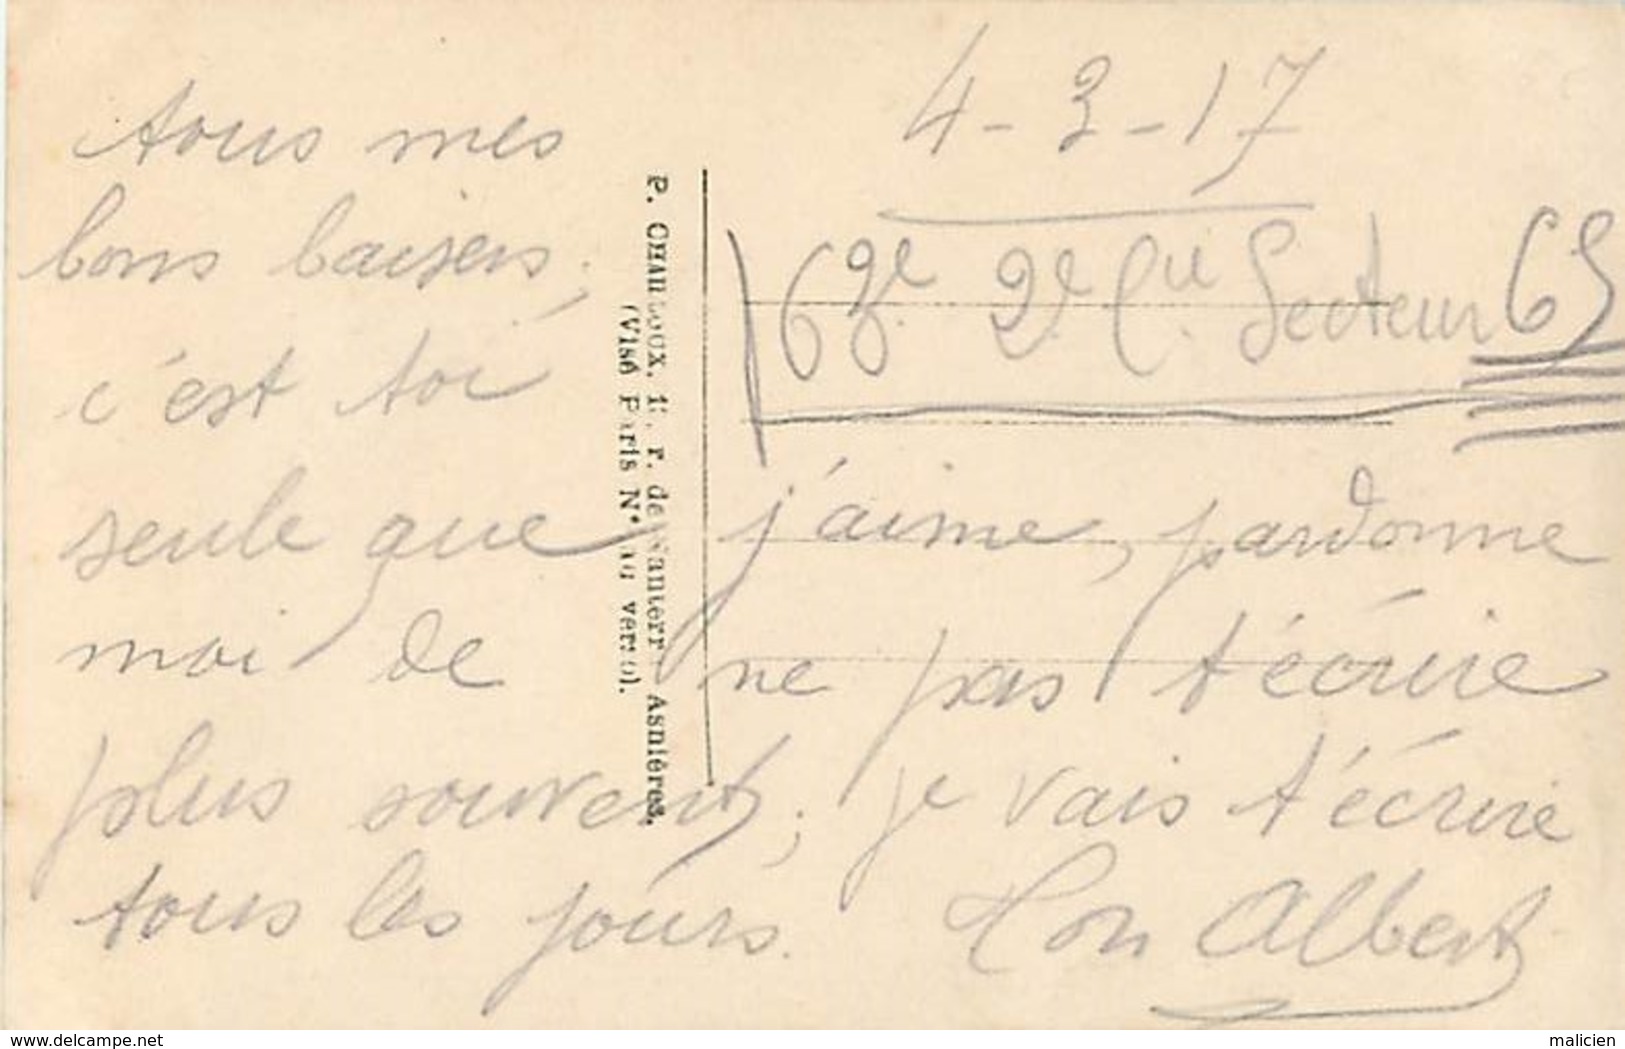 4-3-17
168e. 2e Cie. Secteur 65
tous mes
bons baisers;
c'est toi
seule que j'aime, pardonne
moi de ne pas t'écrire
plus souvent; je vais t'écrire
tous les jours. Ton Albert
P. r. de Asnières.
(Visé Paris N° au verso).
delcampe.net
malicien